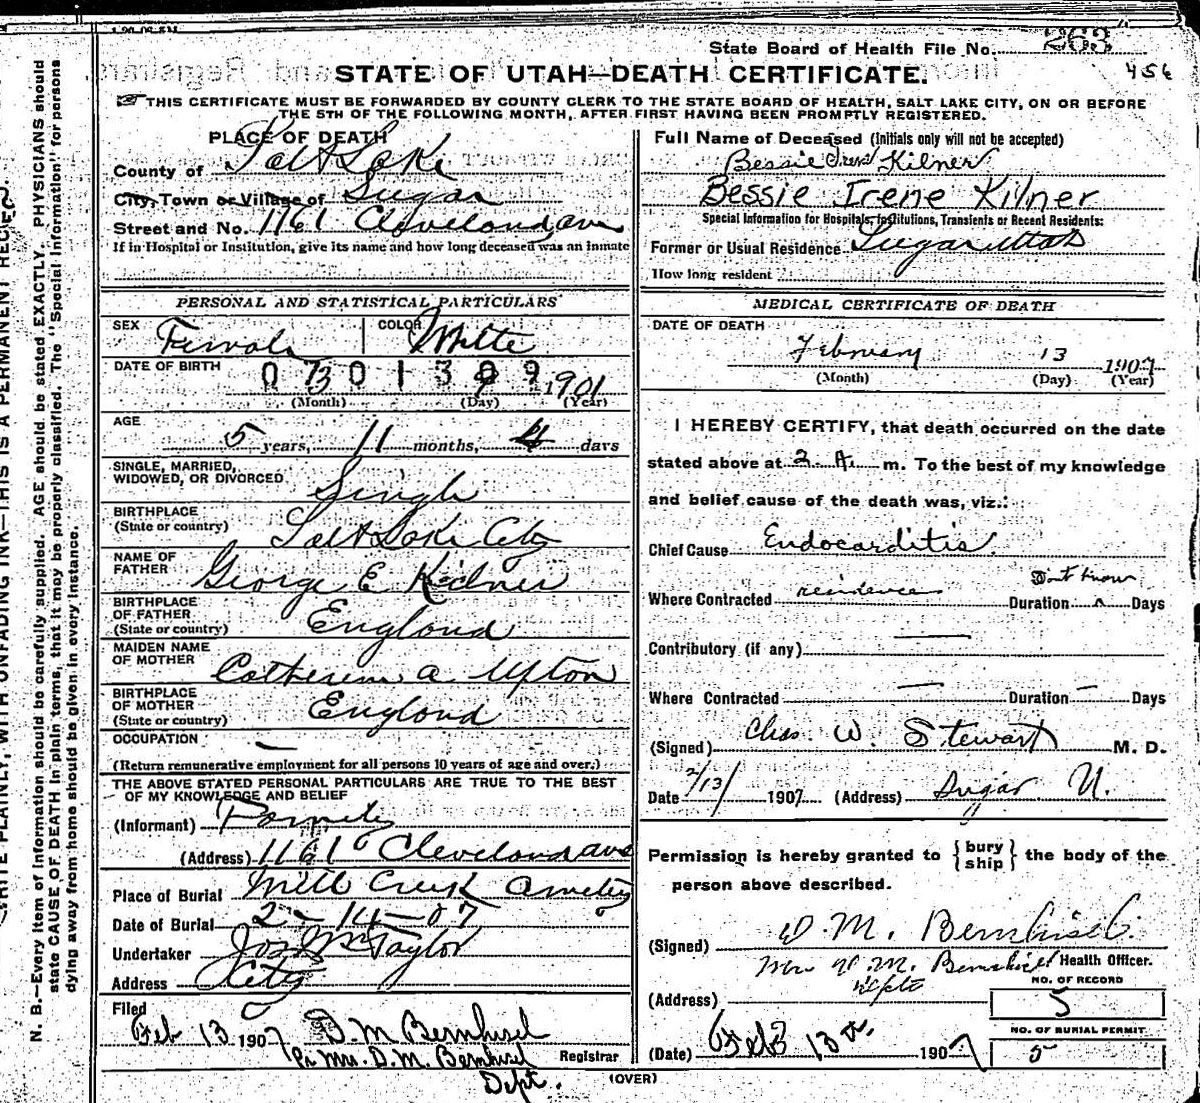 State Board of Health File No. 263
456
STATE OF UTAH—DEATH CERTIFICATE.
THIS CERTIFICATE MUST BE FORWARDED BY COUNTY CLERK TO THE STATE BOARD OF HEALTH, SALT LAKE CITY, ON OR BEFORE
THE 5TH OF THE FOLLOWING MONTH, AFTER FIRST HAVING BEEN PROMPTLY REGISTERED.
PLACE OF DEATH
County of Salt Lake
City, Town or Village of Sugar
Street and No. 1161 Cleveland ave
If in Hospital or Institution, give its name and how long deceased was an inmate
PERSONAL AND STATISTICAL PARTICULARS
SEX Female COLOR White
DATE OF BIRTH 0 7 0 1 3 0 9
3 9 1901
(Month) (Day) (Year)
AGE
5 years, 11 months, 4 days
SINGLE, MARRIED,
WIDOWED, OR DIVORCED Single
BIRTHPLACE
(State or country) Salt Lake City
NAME OF
FATHER George E Kilner
BIRTHPLACE
OF FATHER
(State or country) England
MAIDEN NAME
OF MOTHER Catherine A Upton
BIRTHPLACE
OF MOTHER
(State or country) England
OCCUPATION —
(Return remunerative employment for all persons 10 years of age and over.)
THE ABOVE STATED PERSONAL PARTICULARS ARE TRUE TO THE BEST
OF MY KNOWLEDGE AND BELIEF
(Informant) Family
(Address) 1161 Cleveland ave
Place of Burial Mill Creek Cemetery
Date of Burial 2-14-07
Undertaker Jos Wm Taylor
Address City
Filed
Feb 13 1907 D. M. Bernhisel
Pr Mrs. D. M. Bernhisel Registrar
Dept.
(OVER)
Full Name of Deceased (Initials only will not be accepted)
Bessie Irene Kilner
Bessie Irene Kilner
Special Information for Hospitals, Institutions, Transients or Recent Residents:
Former or Usual Residence Sugar Utah
How long resident
MEDICAL CERTIFICATE OF DEATH
DATE OF DEATH
February 13 1907
(Month) (Day) (Year)
I HEREBY CERTIFY, that death occurred on the date
stated above at 2 A. m. To the best of my knowledge
and belief cause of the death was, viz.:
Chief Cause Endocarditis
Dont know
Where Contracted residence Duration ^ Days
Contributory (if any) —
Where Contracted — Duration — Days
(Signed) Chas. W. Stewart M. D.
Date 2/13/ 1907 (Address) Sugar U.
Permission is hereby granted to {bury ship} the body of the
person above described.
(Signed) D. M. Bernhisel
Mrs D. M. Bernhisel Health Officer.
Depte
(Address)
NO. OF RECORD
5
NO. OF BURIAL PERMIT
5
(Date) Feb 13th. 1907
N. B.—Every item of information should be carefully supplied. AGE should be stated EXACTLY. PHYSICIANS should
state CAUSE OF DEATH in plain terms, that it may be properly classified. The "Special Information" for persons
dying away from home should be given in every instance.
WRITE PLAINLY, WITH UNFADING INK—THIS IS A PERMANENT RECORD.